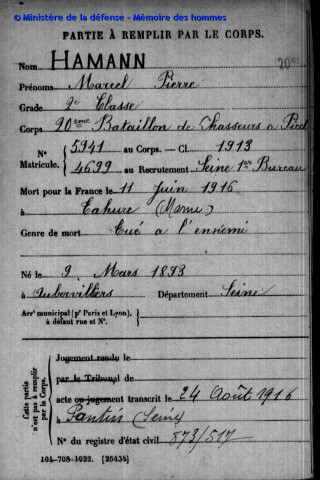 © Ministère de la défense - Mémoire des hommes
PARTIE À REMPLIR PAR LE CORPS.
Nom HAMANN
Prénoms Marcel Pierre
Grade 2e Classe
Corps 20ème Bataillon de Chasseurs a Pied
N° Matricule. { 5941 au Corps. — Cl. 1913
4699 au Recrutement Seine 1er Bureau
Mort pour la France le 11 Juin 1916
à Tahure (Marne)
Genre de mort Tué a l'ennemi
Né le 9 Mars 1893
à Aubervilliers Département Seine
Arrt municipal (pr Paris et Lyon), à défaut rue et N°.
Cette partie n'est pas à remplir par le Corps.
Jugement rendu le
par le Tribunal de
acte ou jugement transcrit le 24 Août 1916
à Pantin (Seine)
N° du registre d'état civil 873/517
101-708-1922. [26434]